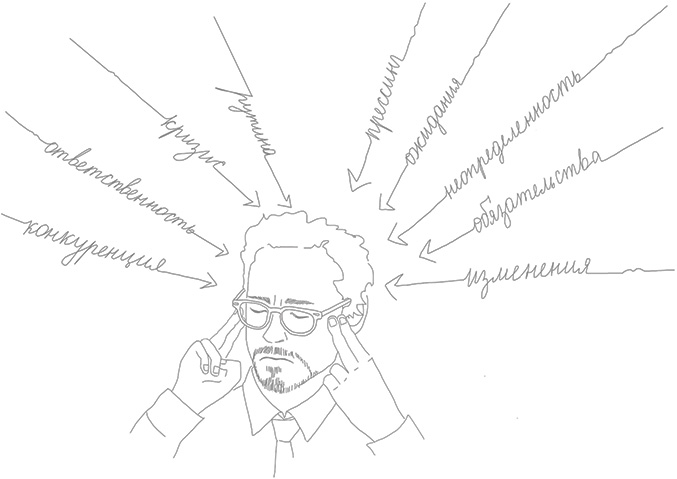 конкуренция
ответственность
кризис
рутина
прессинг
ожидания
неопределенность
обязательства
изменения